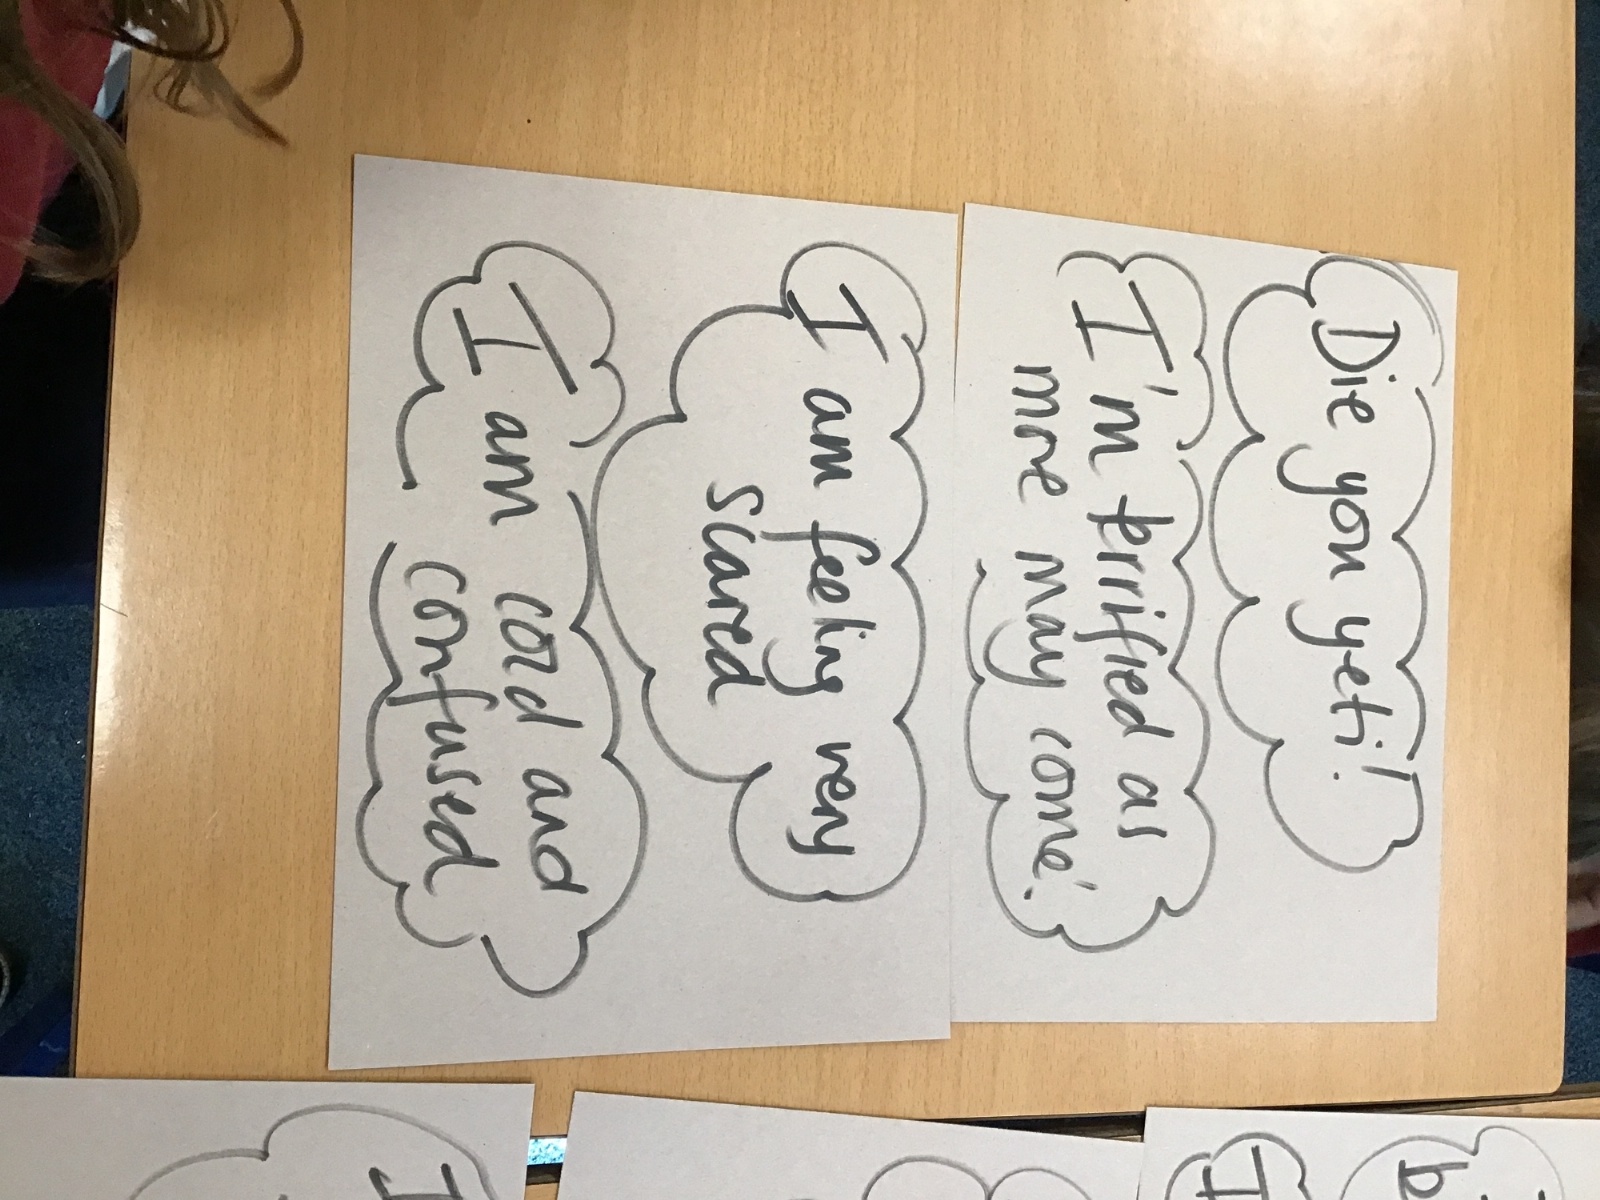 Die you yeti!
I'm terrified as
more may come.
I am feeling very
scared
I am cold and
confused
I
I